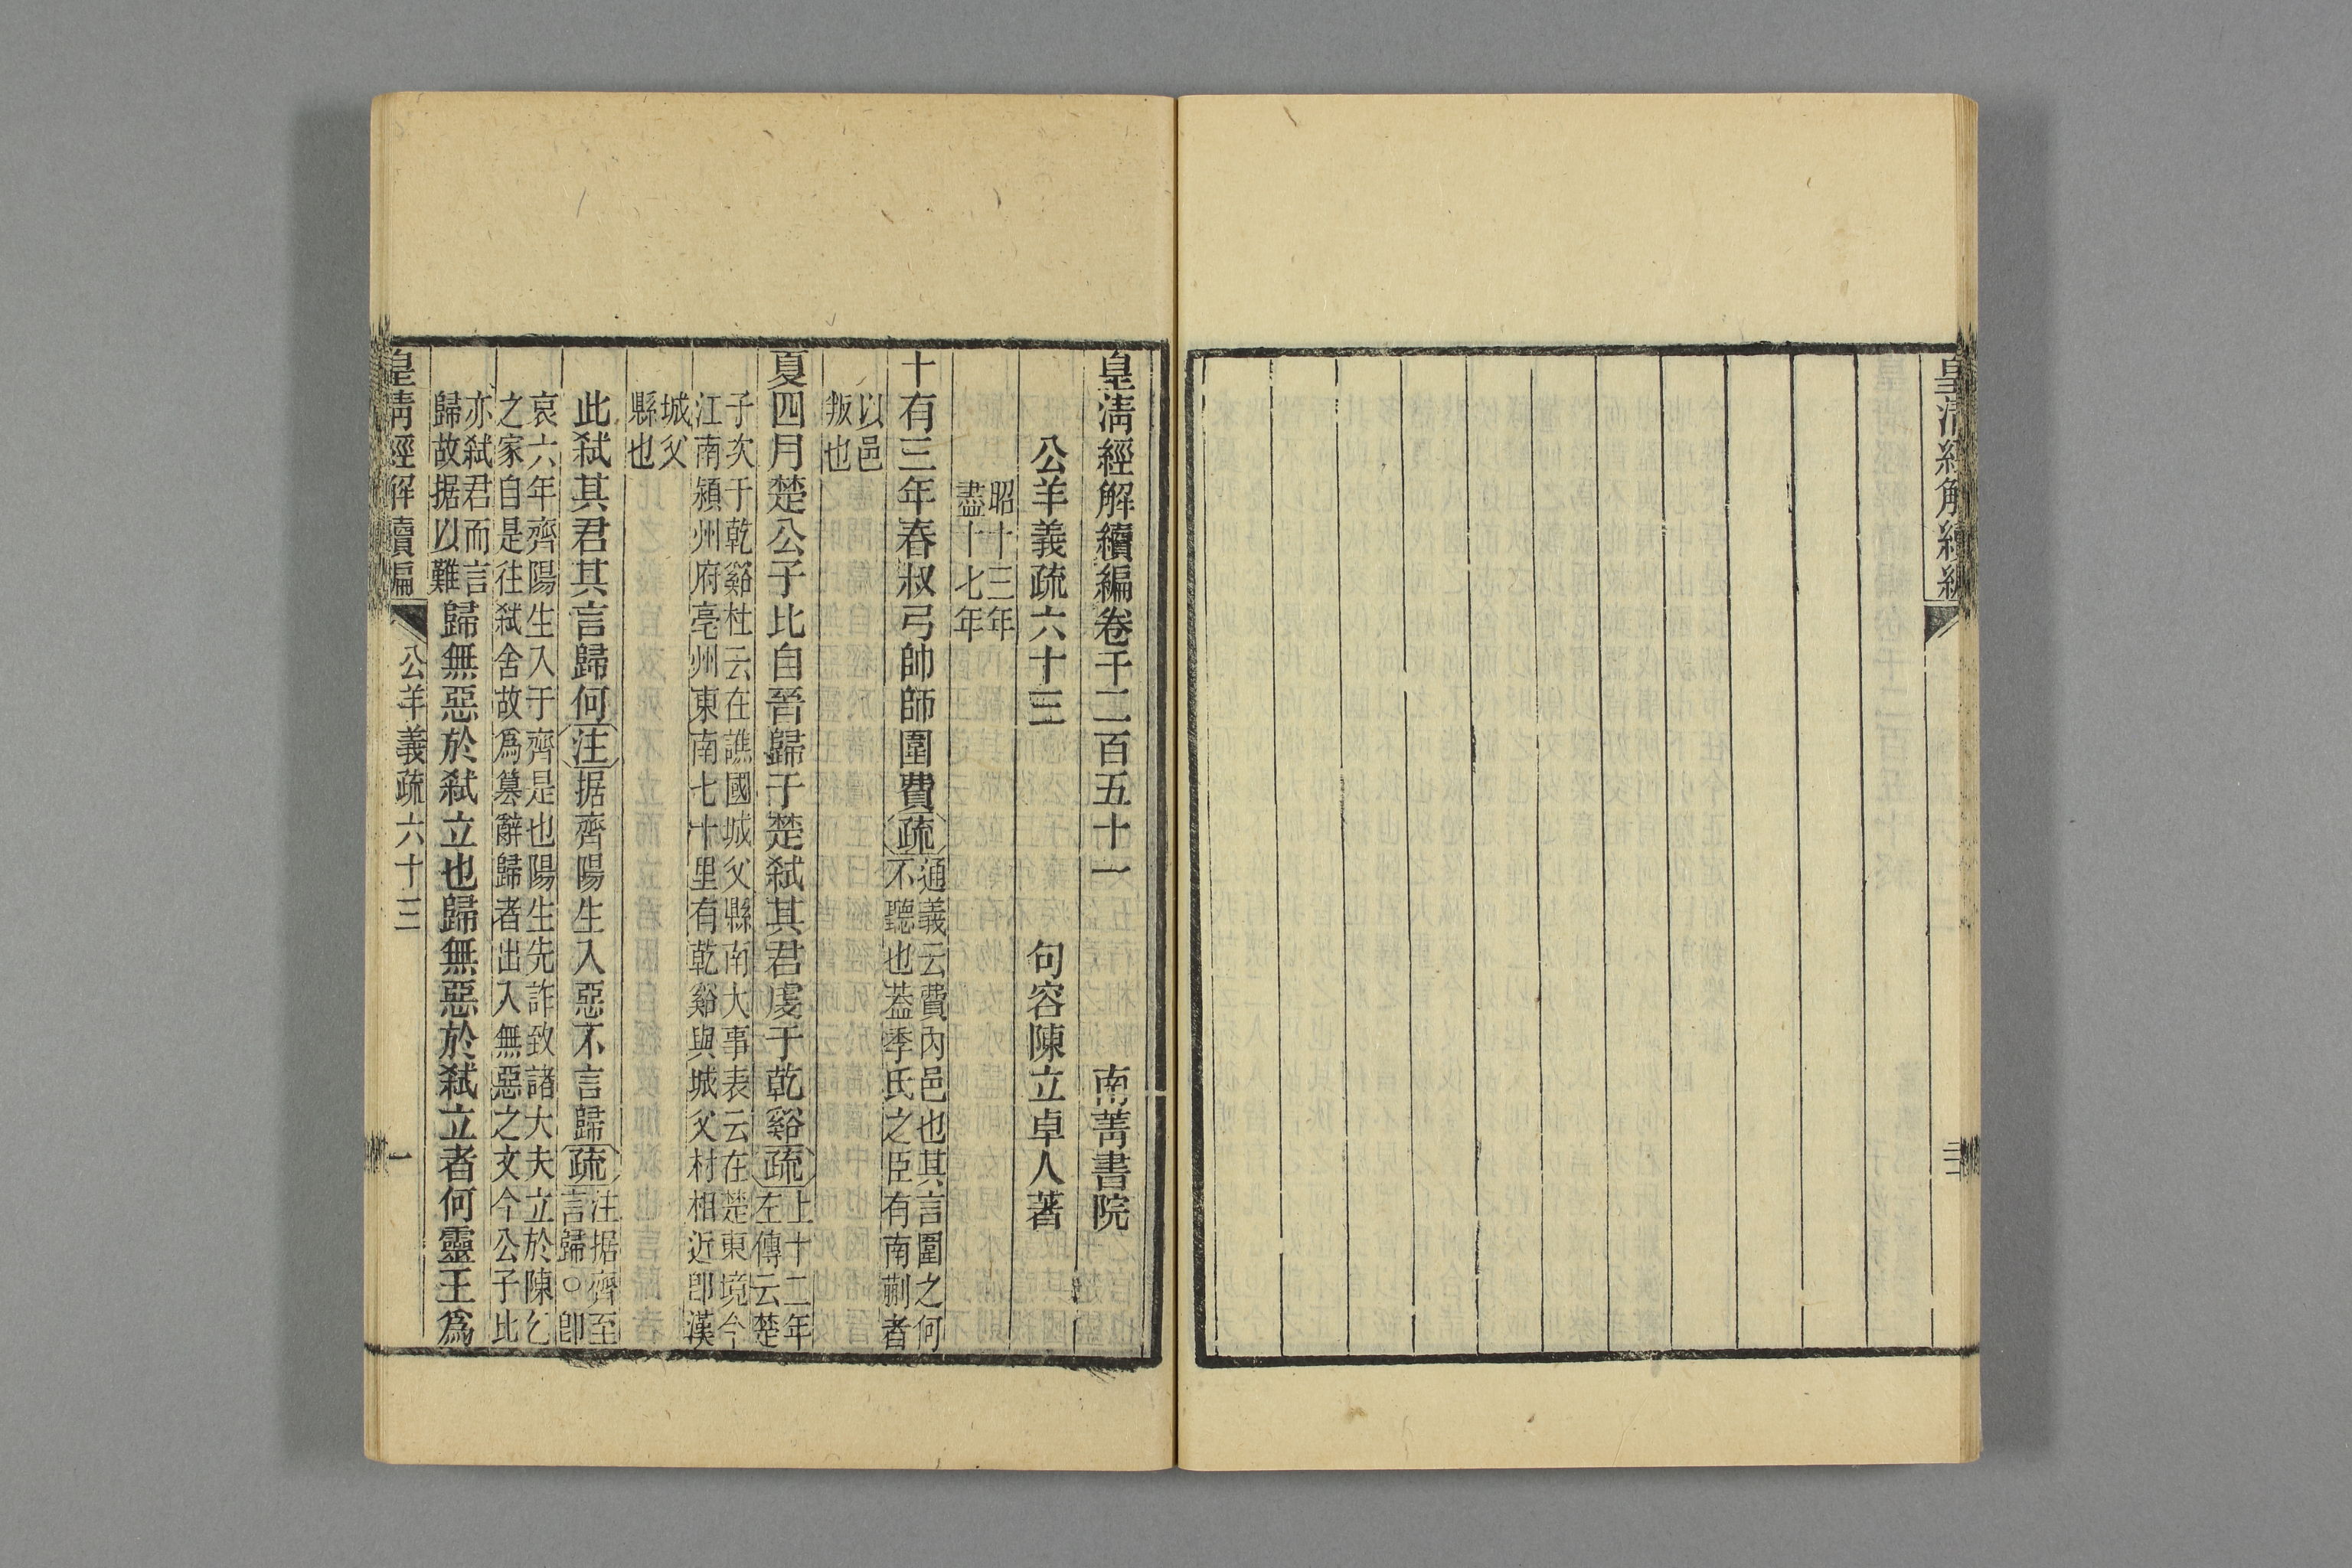 皇清經解續編
三
皇清經解續編卷千二百五十一　南菁書院
公羊義疏六十三　句容陳立卓人著
昭十三年
盡十七年
十有三年春叔弓帥師圍費疏
通義云費內邑也其言圍之何
不聽也葢季氏之臣有南蒯者
以邑
叛也
夏四月楚公子比自晉歸于楚弒其君虔于乾谿疏
上十二年
左傳云楚
子次于乾谿杜云在譙國城父縣南大事表云在楚東境今
江南潁州府亳州東南七十里有乾谿與城父村相近卽漢
城父
縣也
此弒其君其言歸何注据齊陽生入惡不言歸疏
注据齊至
言歸○卽
哀六年齊陽生入于齊是也陽生先詐致諸大夫立於陳乞
之家自是往弒舍故爲篡辭歸者出入無惡之文今公子比
亦弒君而言
歸故据以難
歸無惡於弒立也歸無惡於弒立者何靈王爲
皇清經解續編
公羊義疏六十三
一